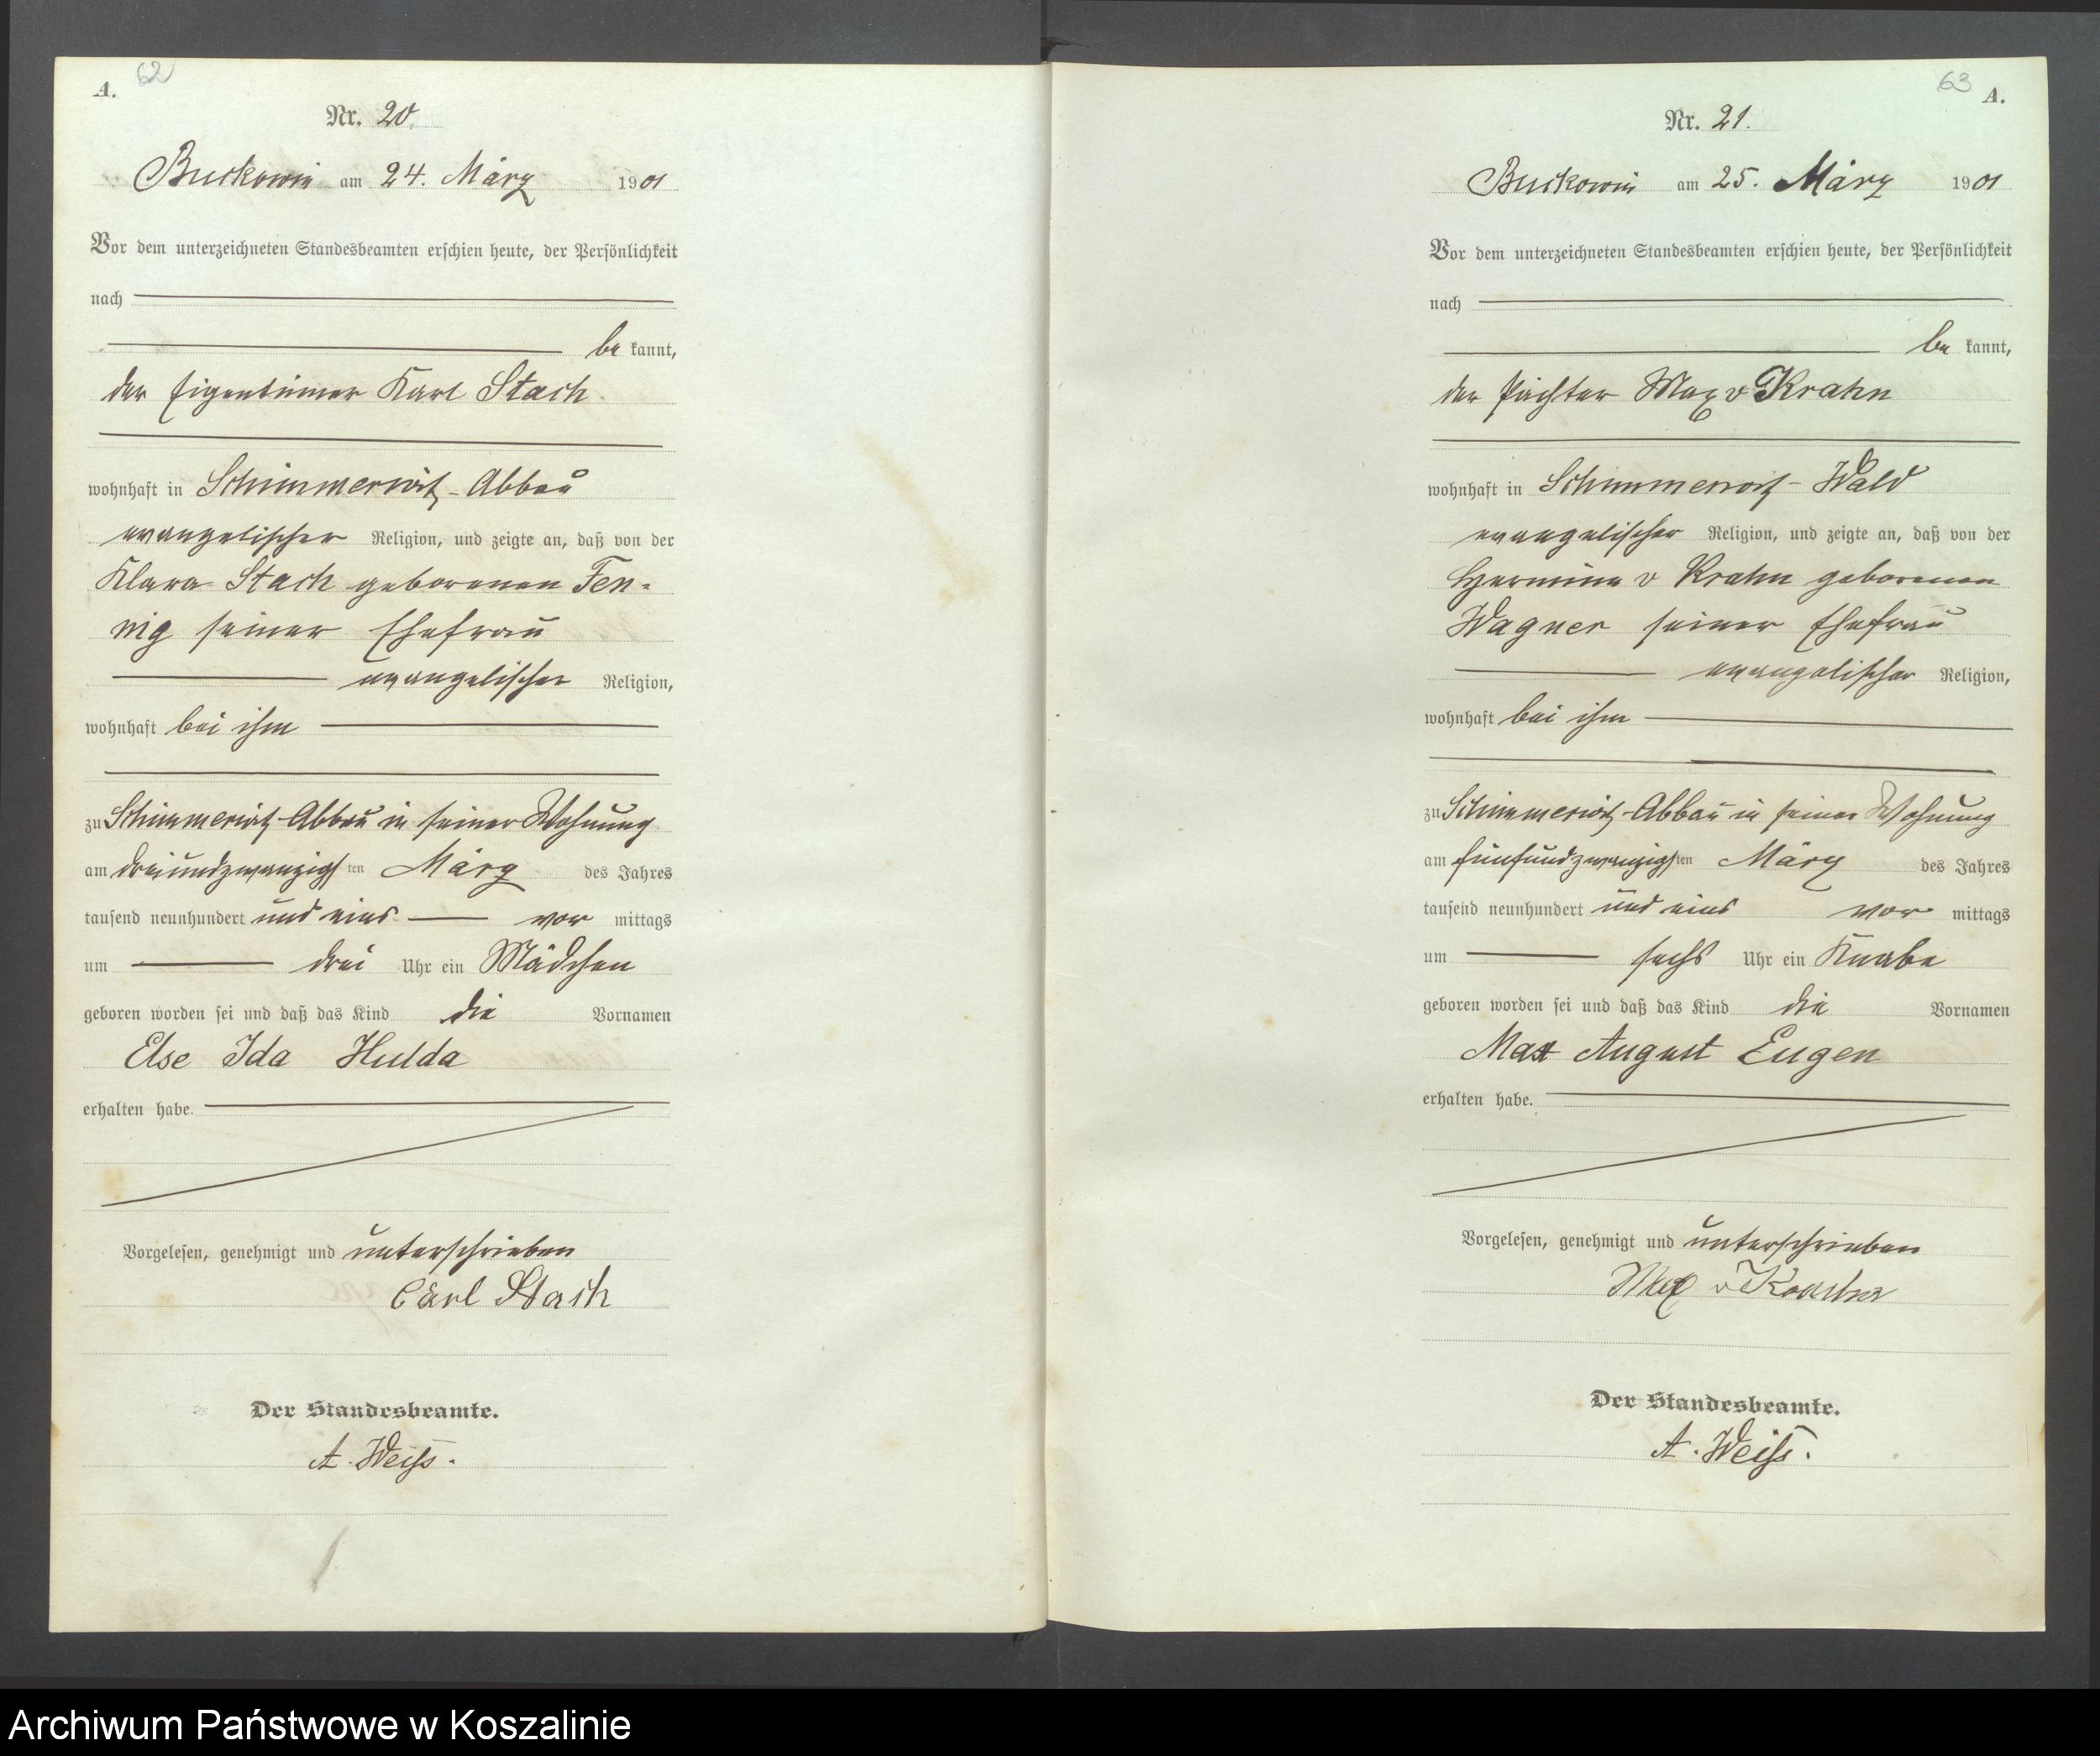 A. 62
Nr. 20.
Buckowin am 24. März 1901
Vor dem unterzeichneten Standesbeamten erschien heute, der Persönlichkeit
nach
be kannt,
der Eigentümer Karl Stach
wohnhaft in Schimmerwitz-Abbau
evangelischer Religion, und zeigte an, daß von der
Klara Stach geborenen Fen-
nig seiner Ehefrau
evangelischer Religion,
wohnhaft bei ihm
zu Schimmerwitz-Abbau in seiner Wohnung
am dreiundzwanzigsten März des Jahres
tausend neunhundert und eins vor mittags
um drei Uhr ein Mädchen
geboren worden sei und daß das Kind die Vornamen
Else Ida Hulda
erhalten habe.
Vorgelesen, genehmigt und unterschrieben
Carl Stach
Der Standesbeamte.
A. Weiß.
63 A.
Nr. 21.
Buckowin am 25. März 1901
Vor dem unterzeichneten Standesbeamten erschien heute, der Persönlichkeit
nach
be kannt,
der Pächter Max v Krahn
wohnhaft in Schimmerwitz-Wald
evangelischer Religion, und zeigte an, daß von der
Hermine v Krahn geborenen
Wagner seiner Ehefrau
evangelischer Religion,
wohnhaft bei ihm
zu Schimmerwitz-Abbau in seiner Wohnung
am fünfundzwanzigsten März des Jahres
tausend neunhundert und eins vor mittags
um sechs Uhr ein Knabe
geboren worden sei und daß das Kind die Vornamen
Max August Eugen
erhalten habe.
Vorgelesen, genehmigt und unterschrieben
Max v
Der Standesbeamte.
A. Weiß.
Archiwum Państwowe w Koszalinie